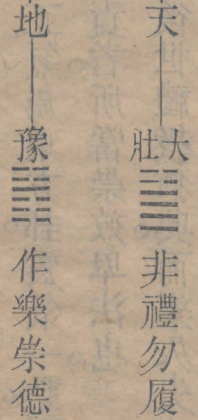 天 大壯 ䷡ 非禮勿履
地 豫 ䷏ 作樂崇德